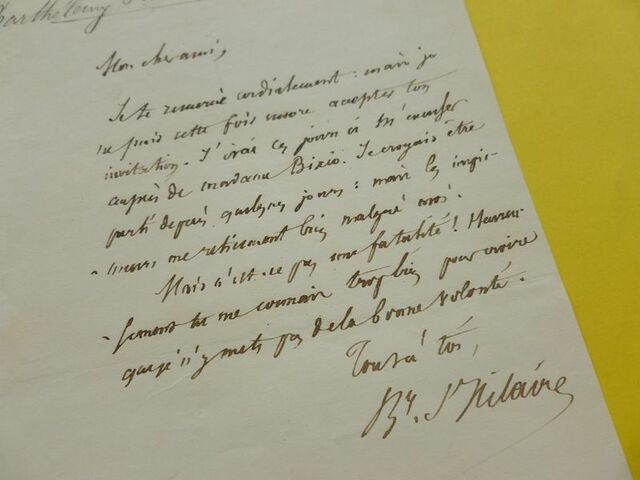 Barthélemy
Mon cher ami,
Je te remercie cordialement : mais je
ne puis cette fois encore accepter ton
invitation. J'irai ces jours ci m'excuser
auprès de madame Bixio. Je croyais être
parti depuis quelques jours : mais les ingé-
-nieurs me retiennent bien malgré moi.
Mais n'est-ce pas une fatalité ! Heureu-
-sement tu me connais trop bien pour croire
que je n'y mets pas de la bonne volonté.
Tout à toi,
By. St Hilaire